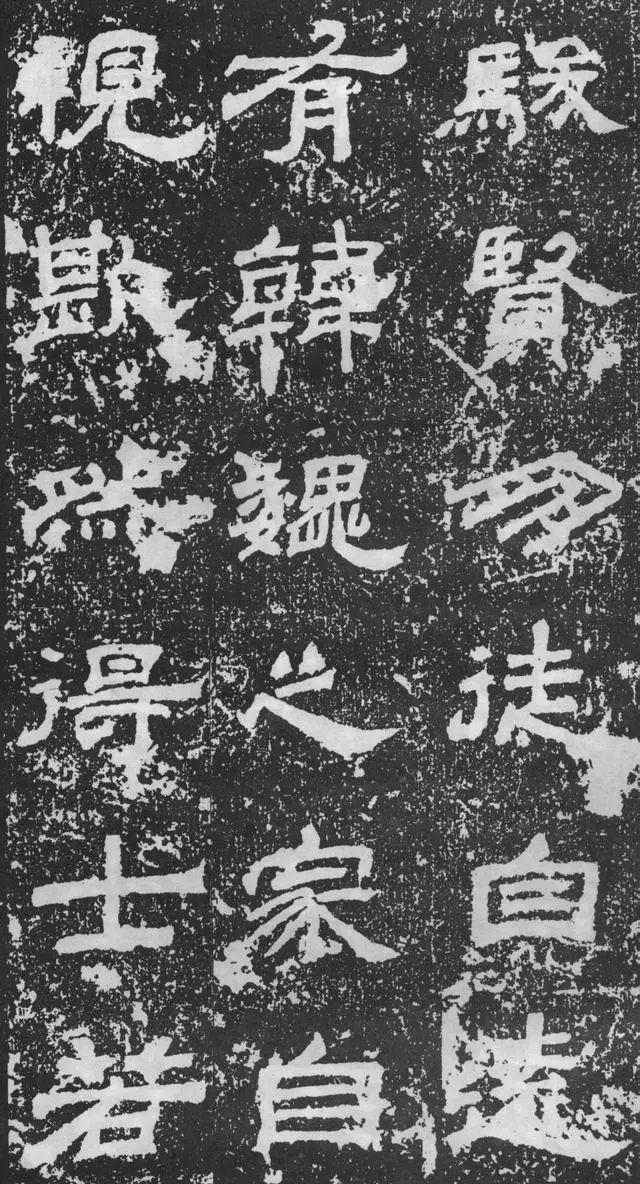 駿賢多徒自遠
有韓魏之家自
視歁然得士若